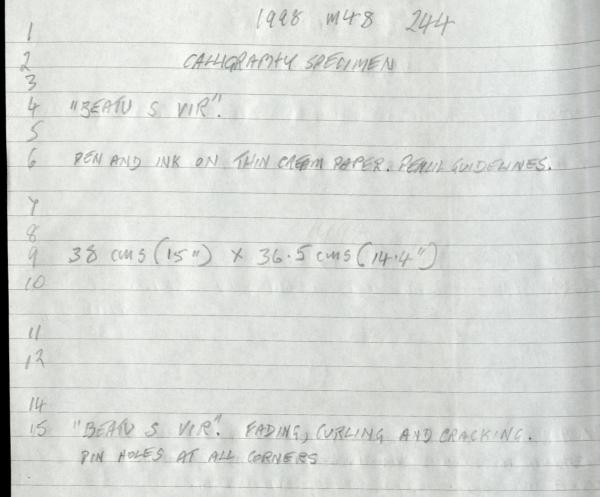 1998 M48 244
1
2 CALLIGRAPHY SPECIMEN
3
4 "BEATU S VIR".
5
6 PEN AND INK ON THIN CREAM PAPER. PENCIL GUIDELINES.
7
8
9 38 cms (15") x 36.5 cms (14.4")
10
11
12
14
15 "BEATU S VIR". FADING, CURLING AND CRACKING.
PIN HOLES AT ALL CORNERS